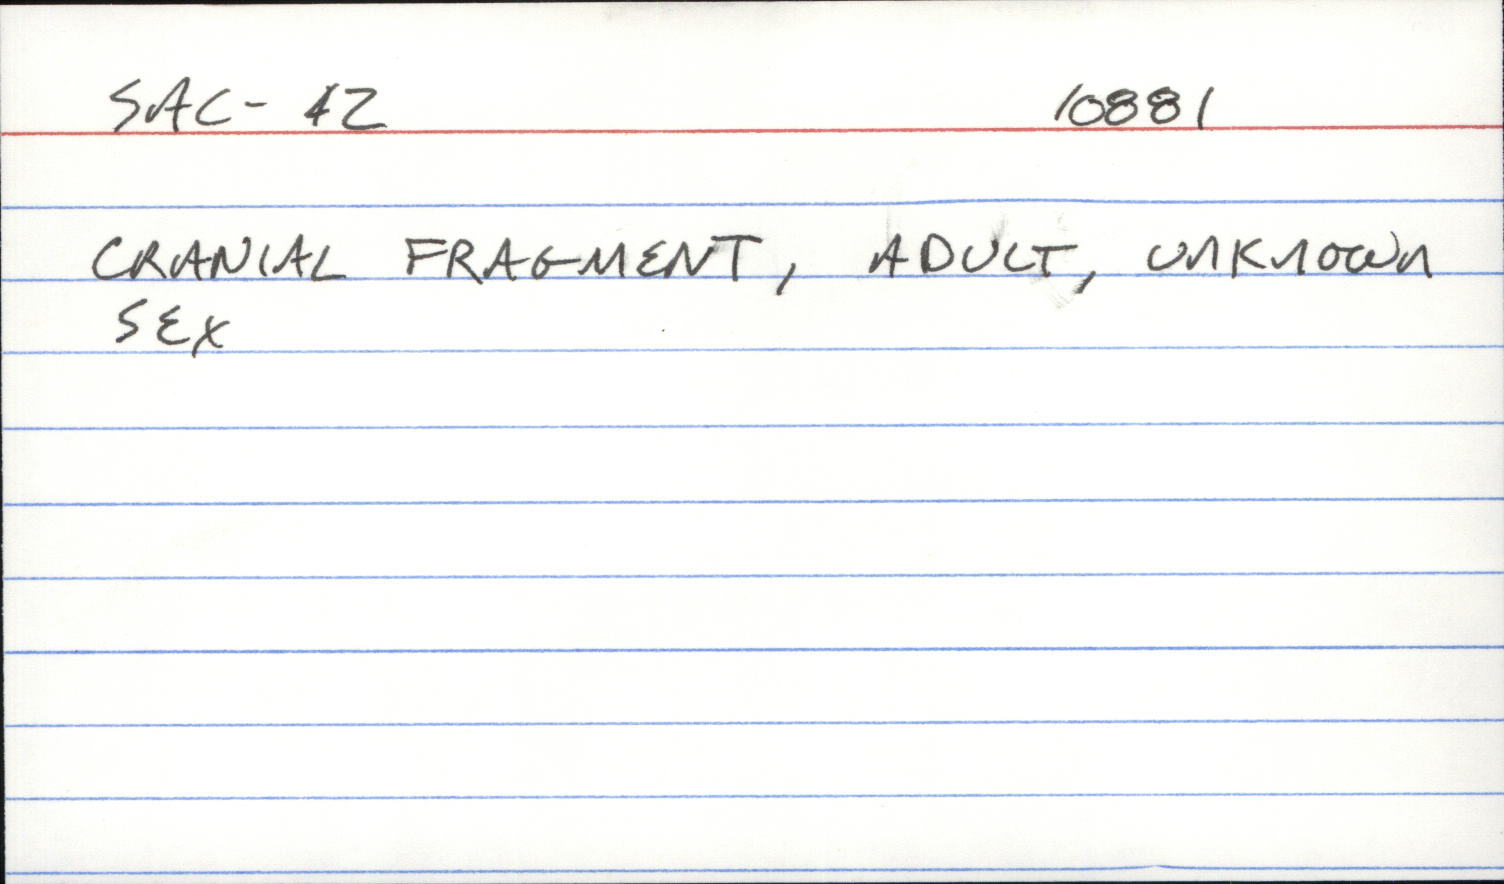 SAC-42 10881
CRANIAL FRAGMENT, ADULT, UNKNOWN
SEX